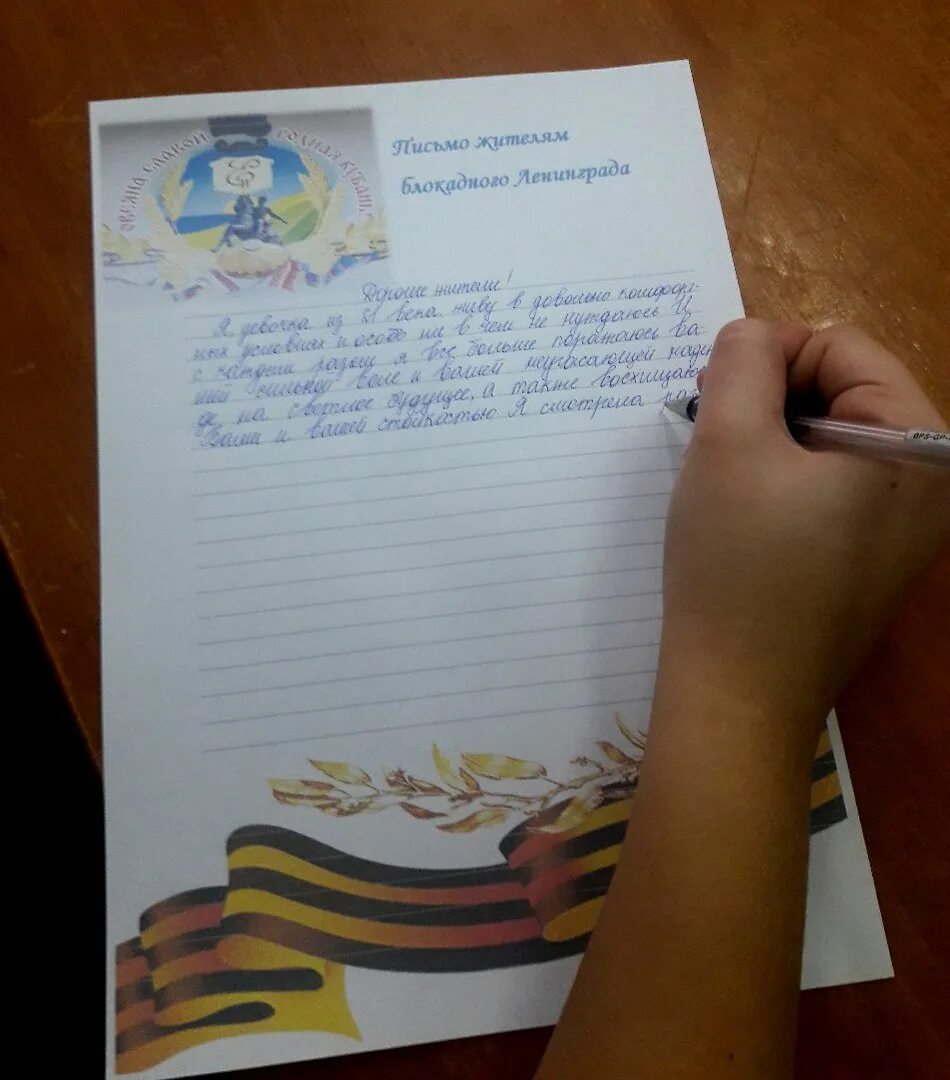 ОВЕЯНА СЛАВОЙ РОДНАЯ КУБАНЬ
Е
Письмо жителям
блокадного Ленинграда
Дорогие жители!
Я девочка из 21 века живу в довольно комфорт-
ных условиях и особо ни в чем не нуждаюсь. И
с каждым разом я все больше поражаюсь ва-
шей сильной воле и вашей неугасающей надеж
де на светлое будущее, а также восхищаюсь
Вами и вашей стойкостью. Я смотрела
BPS-GP